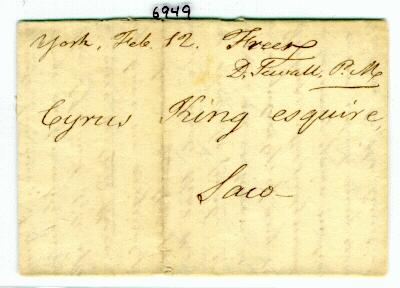 6949
York, Feb. 12. Free
D. Sewall, P. M
Cyrus King esquire,
Saco